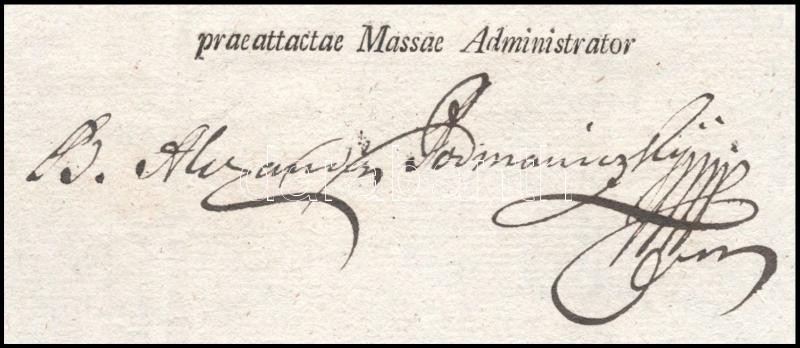 praeattactae Massae Administrator
B. Alexander Podmaniczky
darabanth